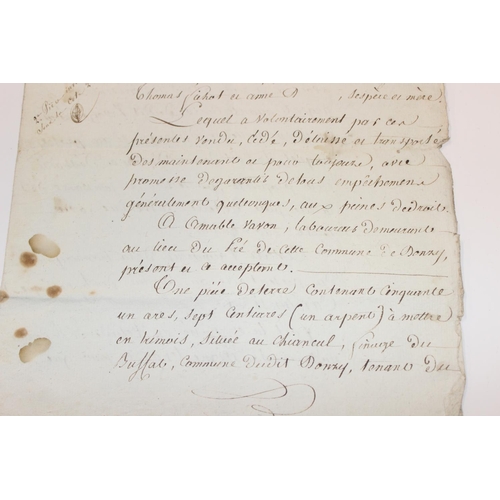 Thomas et anne B , ses père et mère.
Lequel a volontairement par ces
présentes vendu, cédé, délaissé et transporté
dès maintenant et pour toujours, avec
promesse de garantir de tous empêchemens
généralement quelconques, aux peines de droit
A amable vavon, laboureur demeurant
au lieu du Pré de cette Commune de Donzy,
présent et ce acceptant.
Une pièce de terre contenant cinquante
un ares, sept centiares (un arpent) à mettre
en trémois, située au Chianeul, finage du
Buffat, Commune dudit Donzy, tenant du